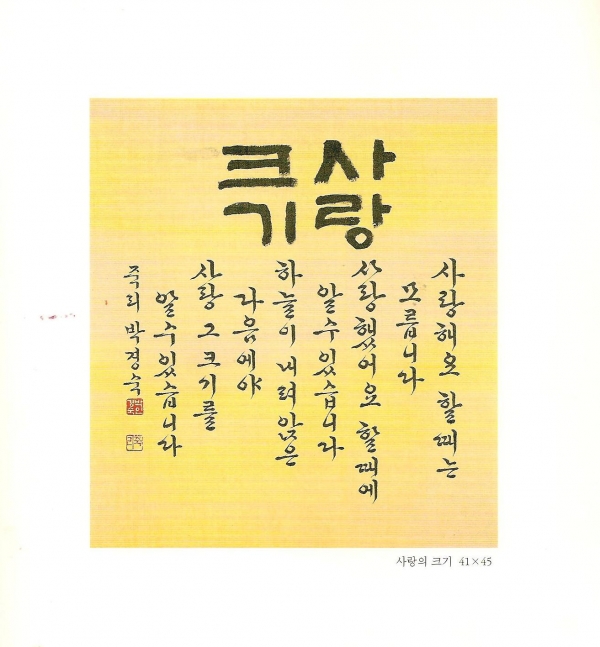 사랑
크기
사랑해요 할 때는
모릅니다
사랑했어요 할 때에
알 수 있습니다
하늘이 내려앉은
다음에야
사랑 그 크기를
알 수 있습니다
죽리 박경숙
사랑의 크기 41×45